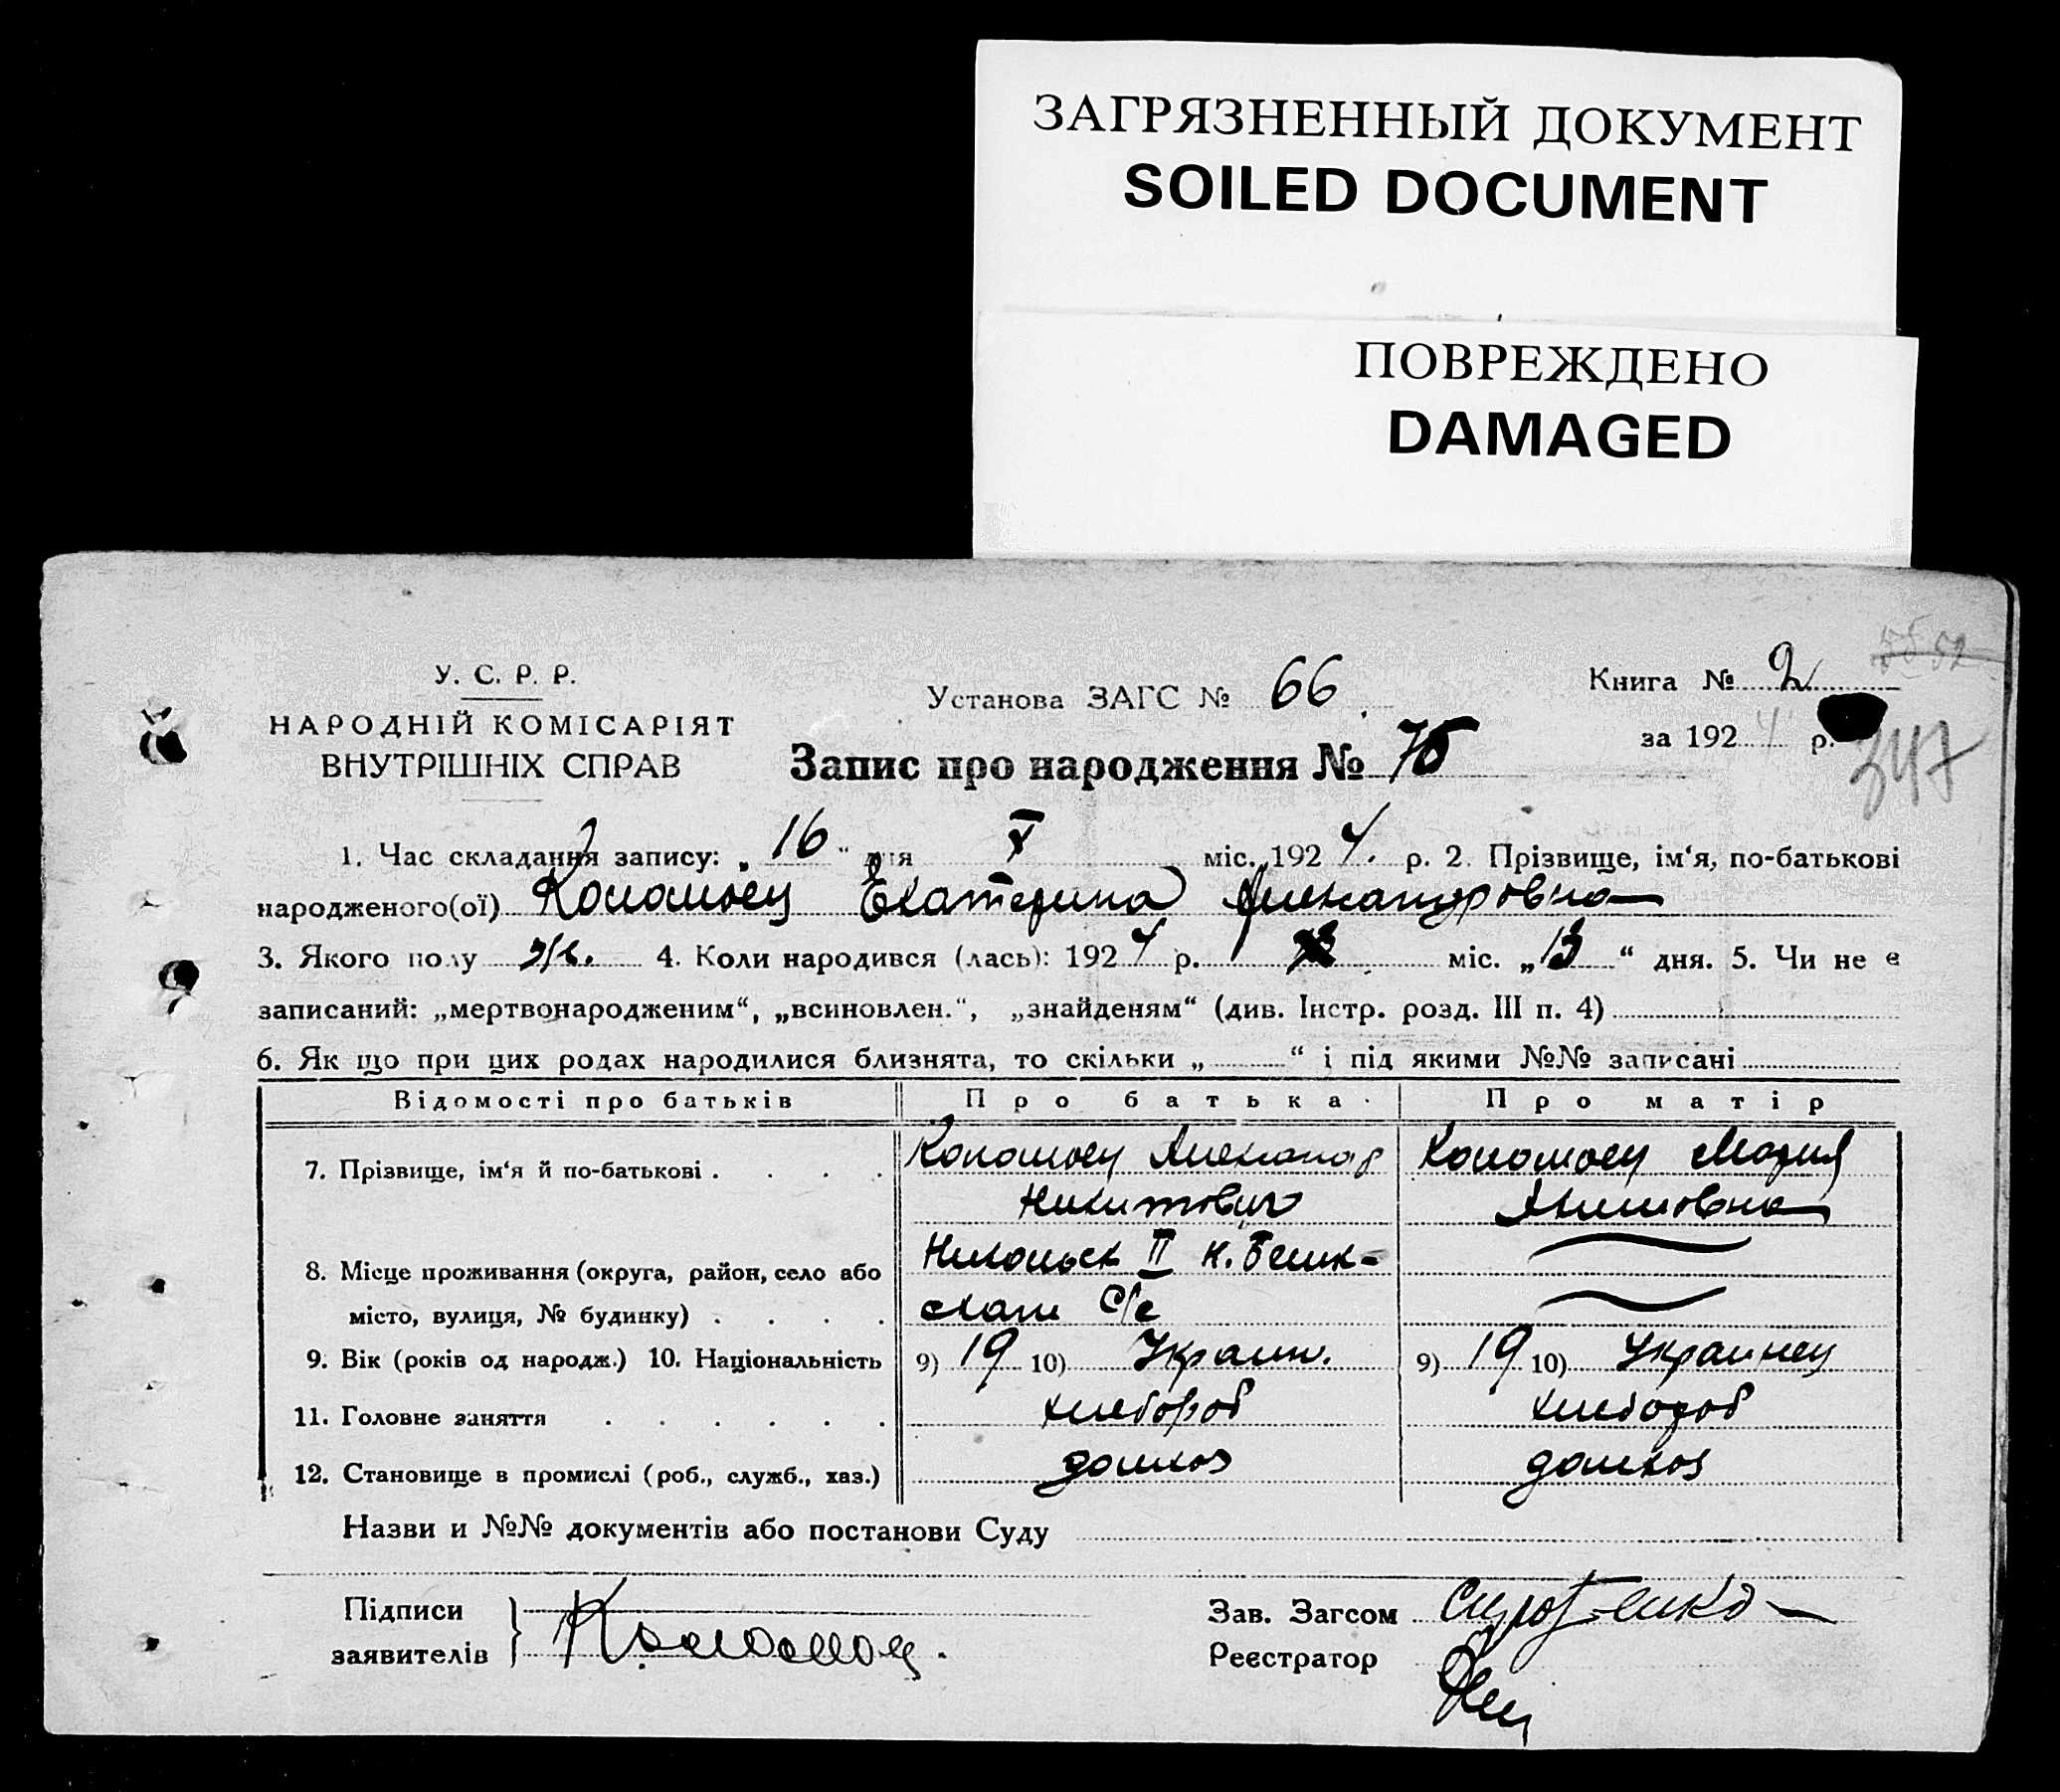 ЗАГРЯЗНЕННЫЙ ДОКУМЕНТ
SOILED DOCUMENT
ПОВРЕЖДЕНО
DAMAGED
52
У. С. Р. Р.
Установа ЗАГС № 66
Книга № 2
НАРОДНІЙ КОМІСАРІЯТ
за 1924 р.
347
ВНУТРІШНІХ СПРАВ
Запис про народження №
1. Час складання запису: „16“ дня X міс. 1924. р. 2. Прізвище, ім‘я, по-батькові
народженого(ої) Коломоец Екатерина Александровна
3. Якого полу ж. 4. Коли народився (лась): 1924 р. міс. „13“ дня. 5. Чи не є
записаний: „мертвонародженим“, „всиновлен.“, „знайденям“ (див. Інстр. розд. III п. 4)
6. Як що при цих родах народилися близнята, то скільки „ “ і під якими №№ записані
Відомості про батьків Про батька Про матір
7. Прізвище, ім‘я й по-батькові . . . . Коломоец Александр Коломоец Мария
Никитович Акимовна
8. Місце проживання (округа, район, село або Никольск II
місто, вулиця, № будинку) . . . . с/с
9. Вік (років од народж.) 10. Національність 9) 19 10) Украин. 9) 19 10) Украинец
11. Головне заняття . . . . . . хлебороб хлебороб
12. Становище в промислі (роб., служб., хаз.) домхоз домхоз
Назви и №№ документів або постанови Суду
Підписи Зав. Загсом
заявителів Коломоец. Реєстратор